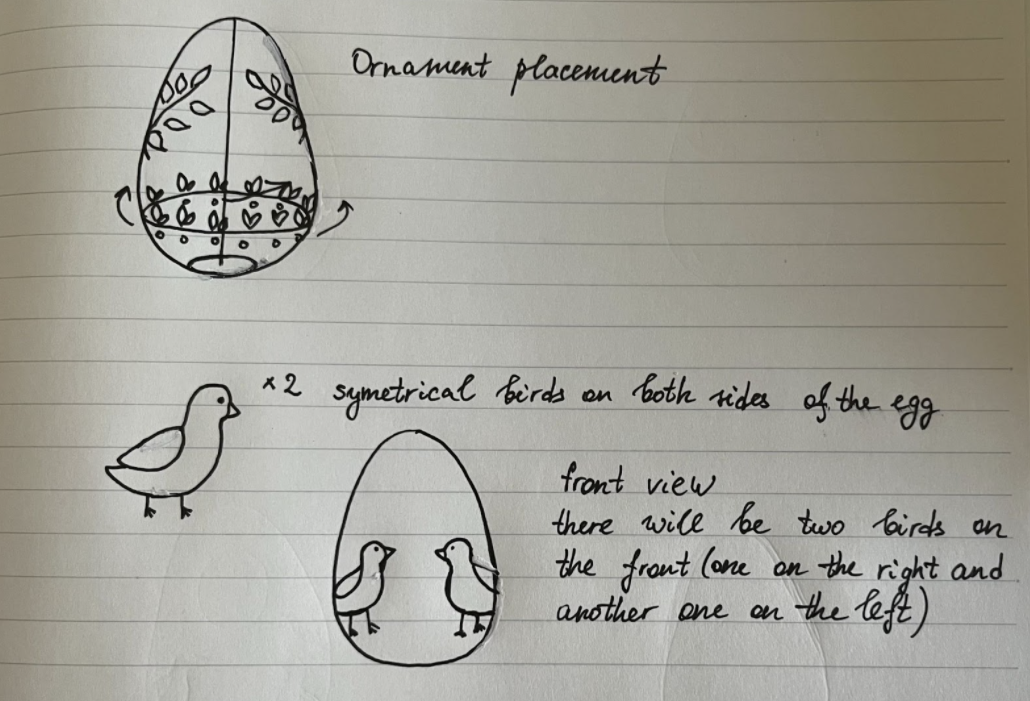 Ornament placement
×2 symetrical birds on both sides of the egg
front view
there will be two birds on
the front (one on the right and
another one on the left)